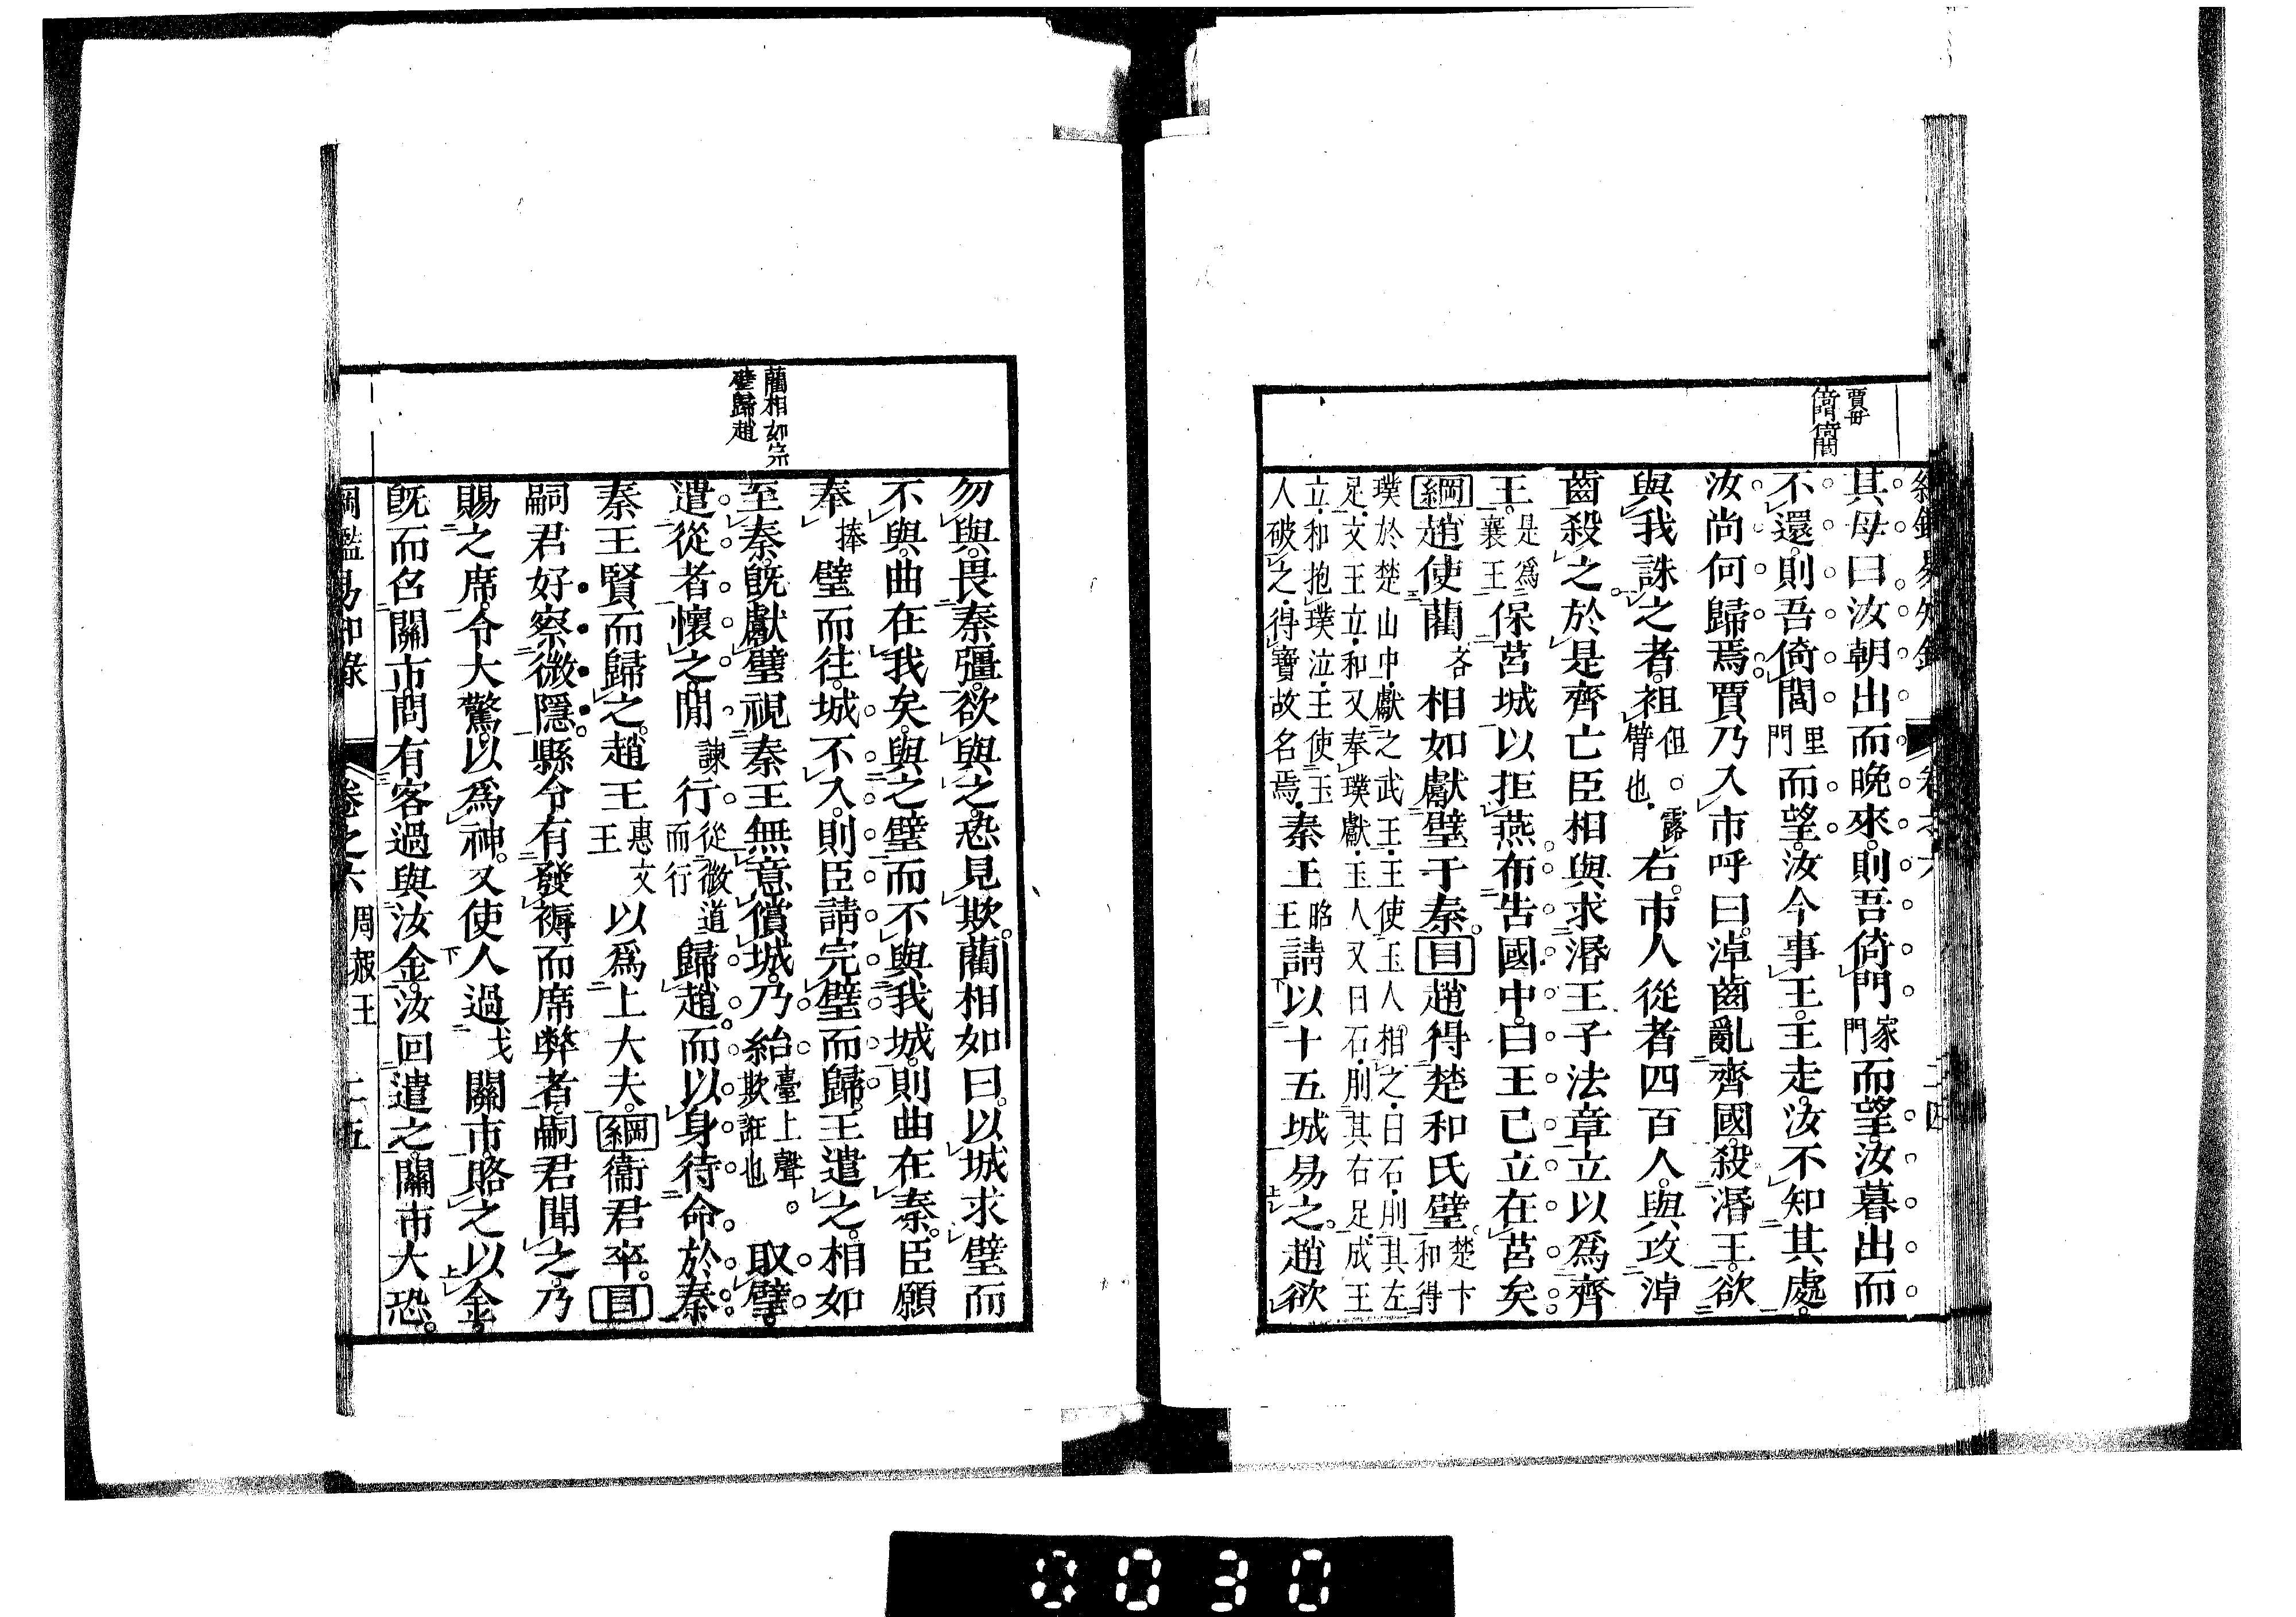 賈母
倚門倚閭
其母曰汝朝出而晚來則吾倚門家門而望汝暮出而
不還則吾倚閭里門而望汝今事王王走汝不知其處
汝尚何歸焉賈乃入市呼曰淖齒亂齊國殺湣王欲
與我誅之者袒但。露臂也右市人從者四百人與攻淖
齒殺之於是齊亡臣相與求湣王子法章立以爲齊
王是爲襄王保莒城以拒燕布告國中曰王已立在莒矣
綱趙使藺吝相如獻璧于秦目趙得楚和氏璧楚卞和得
璞於楚山中獻之武王王使玉人相之曰石刖其左
足文王立和又奉璞獻玉人又曰石刖其右足成王
立和抱璞泣王使玉
人破之得寶故名焉秦王昭王請以十五城易之趙欲
藺相如完
璧歸趙
勿與畏秦彊欲與之恐見欺藺相如曰以城求璧而
不與曲在我矣與之璧而不與我城則曲在秦臣願
奉捧璧而往城不入則臣請完璧而歸王遣之相如
至秦旣獻璧視秦王無意償城乃紿臺上聲。欺誑也取璧
遣從者懷之閒諫行從微道而行歸趙而以身待命於秦
秦王賢而歸之趙王惠文王以爲上大夫綱衞君卒目
嗣君好察微隱縣令有發褥而席弊者嗣君聞之乃
賜之席令大驚以爲神又使人過戈關市賂之以金
旣而召關市問有客過與汝金汝回遣之關市大恐
綱鑑易知錄 卷之六 周赧王 二十五